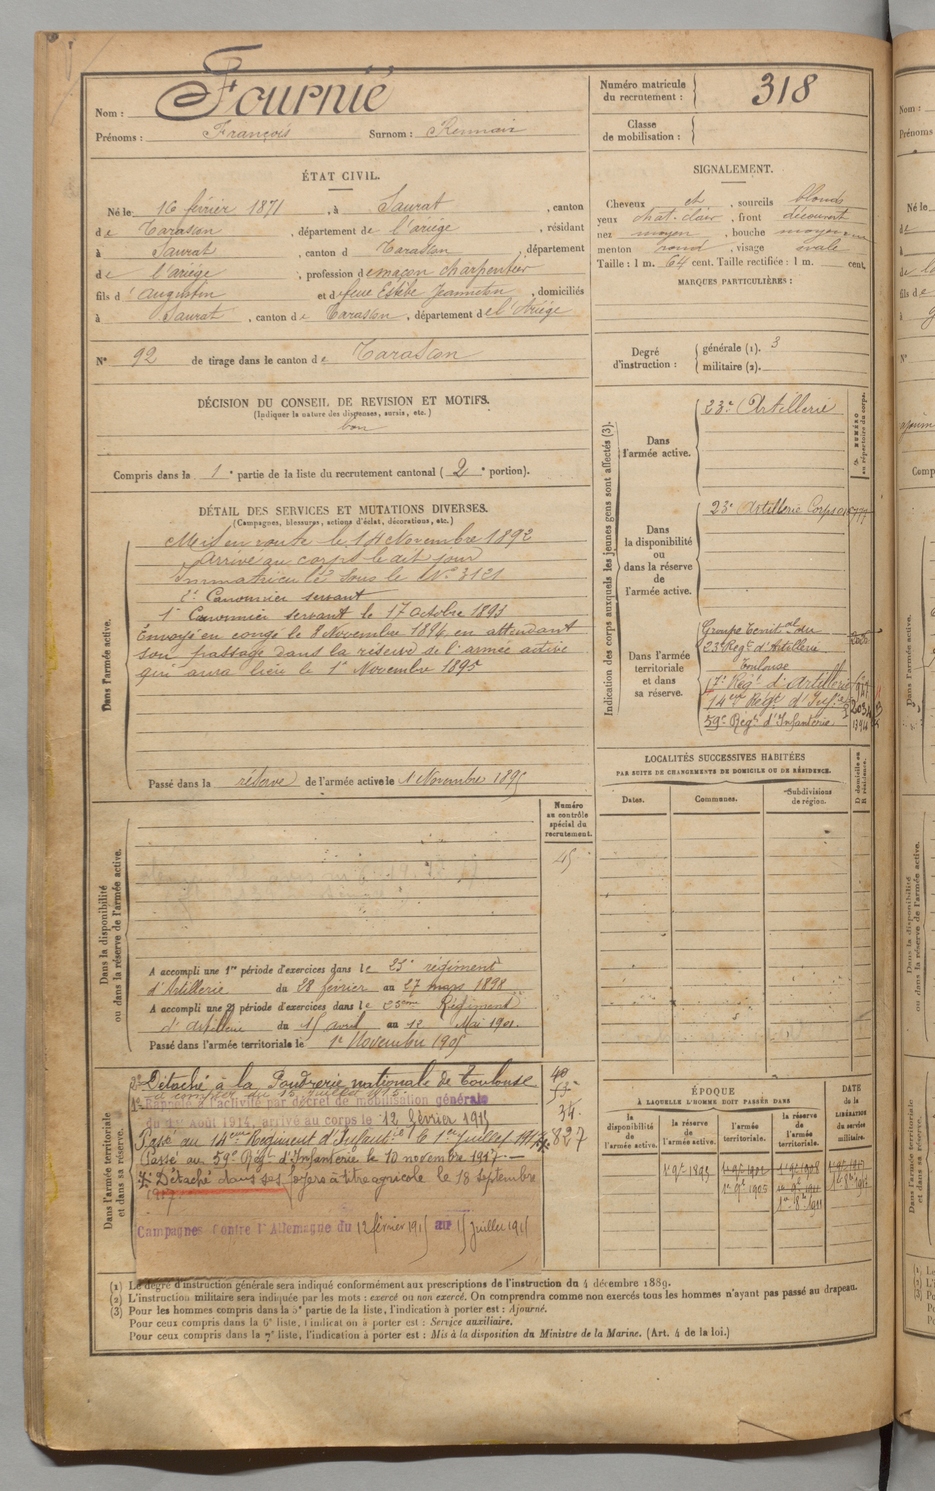 Nom : Fournié
Prénoms : François Surnom :
Numéro matricule du recrutement : 318
Classe de mobilisation :
ÉTAT CIVIL.
Né le 16 février 1871, à Saurat, canton
de Tarascon, département de l'ariège, résidant
à Saurat, canton d Tarascon, département
de l'ariège, profession de maçon charpentier
fils d'Augustin et de feue Estèbe Jeanneton, domiciliés
à Saurat, canton de Tarascon, département de l'Ariège
N° 92 de tirage dans le canton de Tarascon
DÉCISION DU CONSEIL DE REVISION ET MOTIFS.
(Indiquer la nature des dispenses, sursis, etc.)
bon
Compris dans la 1e partie de la liste du recrutement cantonal (2e portion).
SIGNALEMENT.
Cheveux et, sourcils blonds
yeux chat. clair, front découvert
nez moyen, bouche moyenne
menton rond, visage ovale
Taille : 1 m. 64 cent. Taille rectifiée : 1 m. cent.
MARQUES PARTICULIÈRES :
Degré d'instruction :
générale (1). 3
militaire (2).
DÉTAIL DES SERVICES ET MUTATIONS DIVERSES.
(Campagnes, blessures, actions d'éclat, décorations, etc.)
Dans l'armée active.
Mis en route le 14 Novembre 1892
Arrivé au corps le dit jour
Immatriculé sous le N° 3121
2e Canonnier servant
1er Canonnier servant le 17 octobre 1893
Envoyé en congé le 8 Novembre 1894 en attendant
son passage dans la réserve de l'armée active
qui aura lieu le 1er Novembre 1895
Passé dans la réserve de l'armée active le 1 Novembre 1895
Indication des corps auxquels les jeunes gens sont affectés (3).
NUMÉRO au répertoire du corps.
Dans l'armée active.
23e Artillerie
Dans la disponibilité ou dans la réserve de l'armée active.
23e Artillerie Corps
Dans l'armée territoriale et dans sa réserve.
Groupe territal du
23e Régt d'Artillerie
Toulouse
17e Régt d'Artillerie
14eme Régt d'Inf.
59e Régt d'Infanterie
LOCALITÉS SUCCESSIVES HABITÉES
PAR SUITE DE CHANGEMENTS DE DOMICILE OU DE RÉSIDENCE.
Dates. Communes. Subdivisions de région. D domicile ou R résidence.
Dans la disponibilité ou dans la réserve de l'armée active.
Numéro au contrôle spécial du recrutement.
45
A accompli une 1re période d'exercices dans le 23e régiment
d'Artillerie du 28 février au 27 mars 1898
A accompli une 2e période d'exercices dans le 23eme Régiment
d'artillerie du 15 avril au 12 Mai 1901.
Passé dans l'armée territoriale le 1er Novembre 1905
Dans l'armée territoriale et dans sa réserve.
2° Détaché à la Poudrerie nationale de Toulouse
à compter du 15 Juillet 1915.
1° Rappelé à l'activité par décret de mobilisation générale
du 1er Août 1914, arrivé au corps le 12 février 1915
Passé au 14eme Régiment d'Infanterie le 1er juillet
Passé au 59e Régt d'Infanterie le 10 novembre 1917.
Détaché dans ses foyers à titre agricole le 18 septembre
1917.
Campagnes contre l'Allemagne du 12 février 1915 au 15 juillet 1915
34.
827
ÉPOQUE
À LAQUELLE L'HOMME DOIT PASSER DANS
la disponibilité de l'armée active. la réserve de l'armée active. l'armée territoriale. la réserve de l'armée territoriale.
DATE de la LIBÉRATION du service militaire.
(1) Le degré d'instruction générale sera indiqué conformément aux prescriptions de l'instruction du 4 décembre 1889.
(2) L'instruction militaire sera indiquée par les mots : exercé ou non exercé. On comprendra comme non exercés tous les hommes n'ayant pas passé au drapeau.
(3) Pour les hommes compris dans la 5e partie de la liste, l'indication à porter est : Ajourné.
Pour ceux compris dans la 6e liste, l'indication à porter est : Service auxiliaire.
Pour ceux compris dans la 7e liste, l'indication à porter est : Mis à la disposition du Ministre de la Marine. (Art. 4 de la loi.)